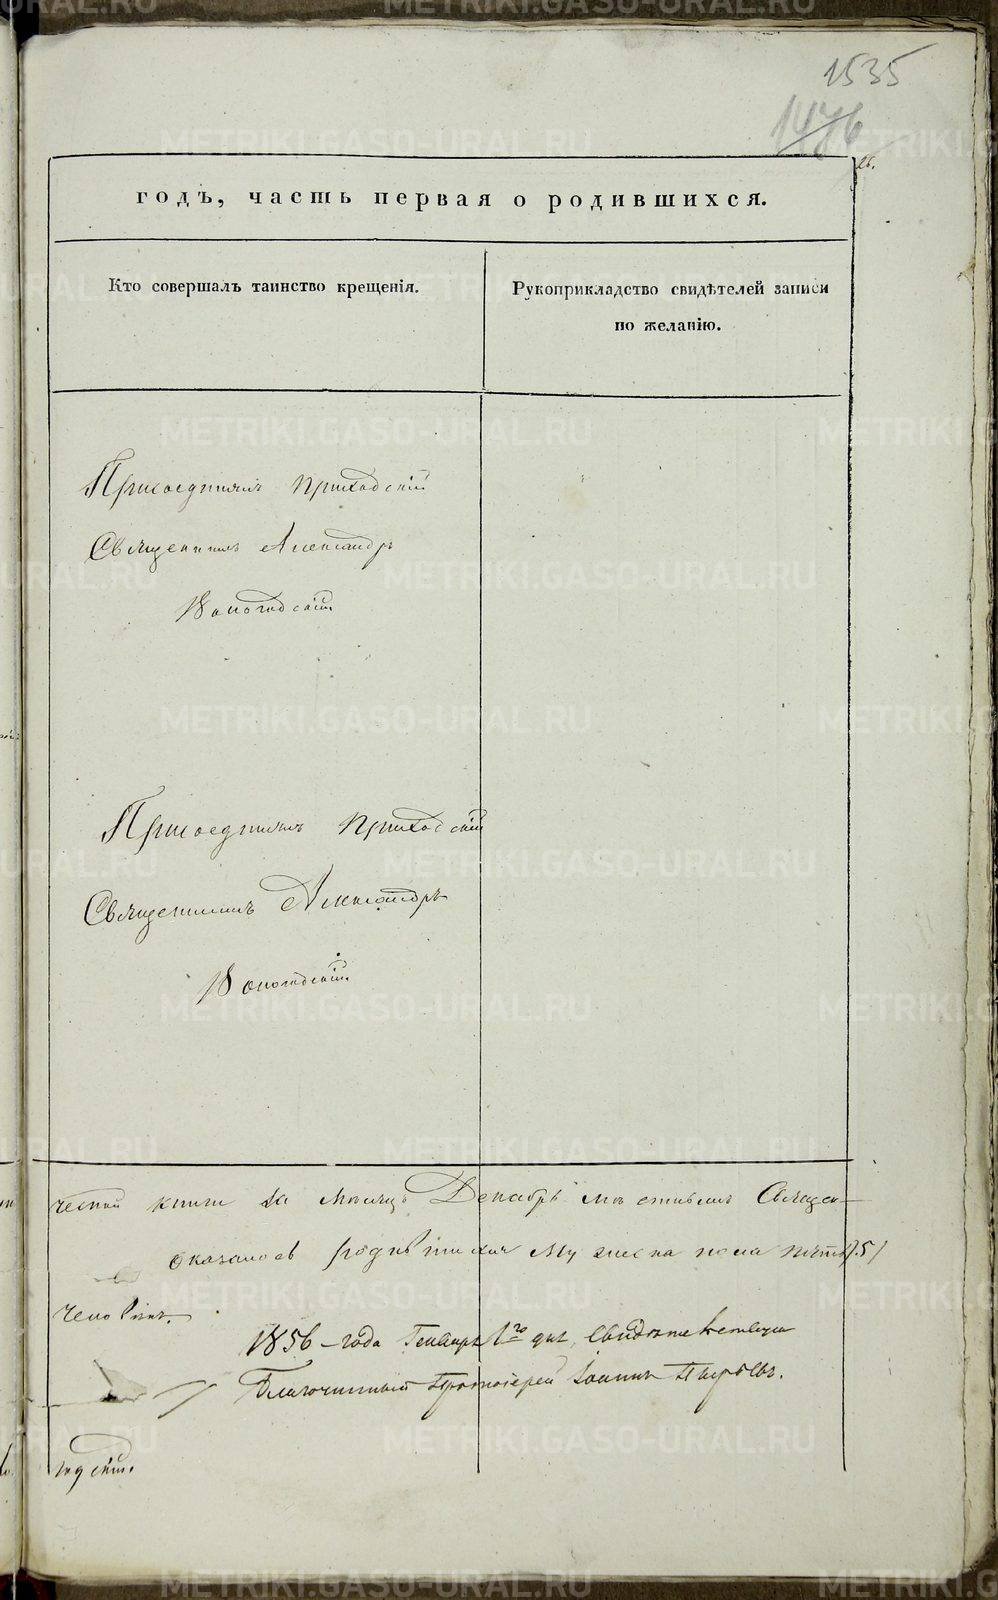 1535
1476
26.
годъ, часть первая о родившихся.
Кто совершалъ таинство крещенія.
Рукоприкладство свидѣтелей записи
по желанію.
Присоединилъ приходскій
Священникъ Александръ
Вологодскій.
Присоединилъ Приходскій
Священникъ Александръ
Вологодскій.
ческой книги за Мѣсяцъ Декабрь мѣстнымъ Священ-
оказалось родившихся Мужеска пола пять /5/
Человѣкъ.
1856 года Генваря 1го дня, свидѣтельствую
Благочинный Протоіерей Іоаннъ
годскій.
METRIKI.GASO-URAL.RU